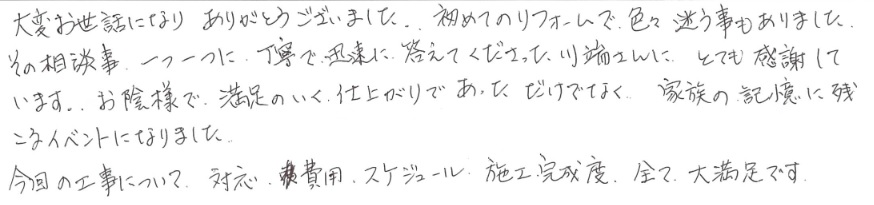 大変お世話になり ありがとうございました。. 初めてのリフォームで、色々 迷う事もありました.
その相談事. 一つ一つに. 丁寧で、迅速に. 答えてくださった 川端さんに. とても 感謝して
います。. お陰様で. 満足のいく. 仕上がりであった だけでなく. 家族の 記憶に 残
こるイベントになりました.
今回の工事について. 対応. 費用. スケジュール. 施工完成度. 全て. 大満足です.